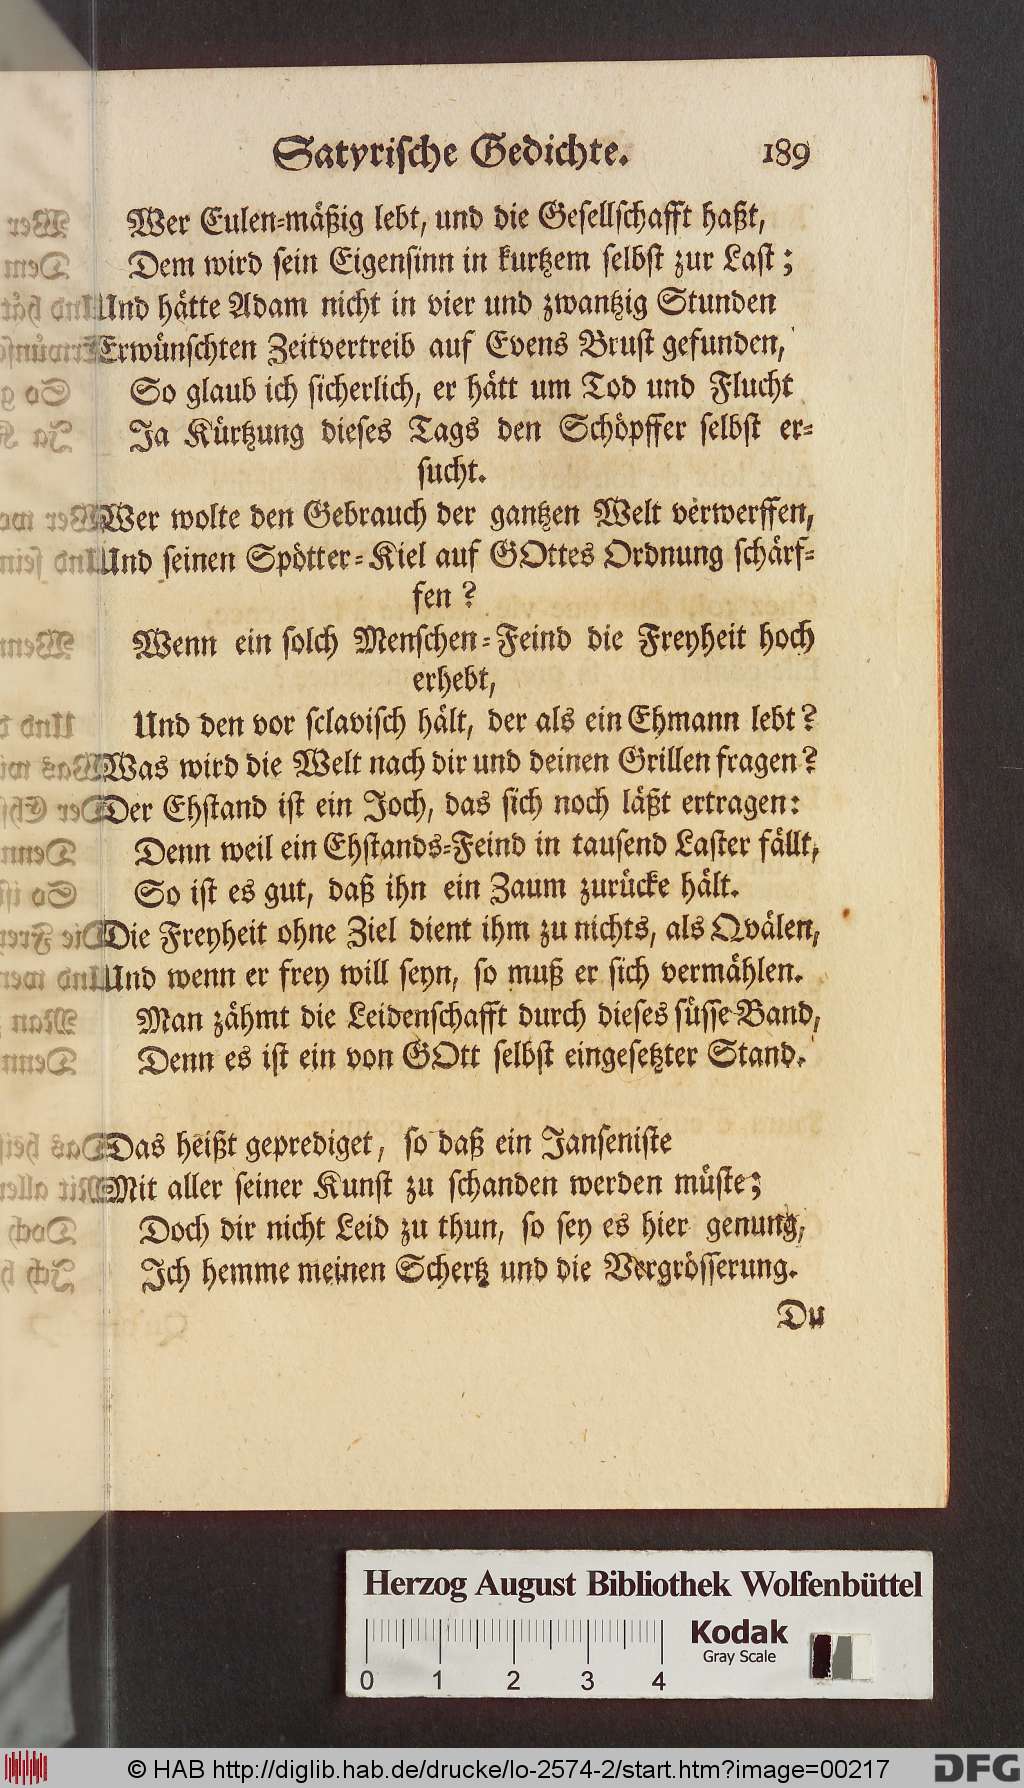 Satyrische Gedichte. 189
Wer Eulen-mäßig lebt, und die Gesellschafft haßt,
Dem wird sein Eigensinn in kurtzem selbst zur Last;
Und hätte Adam nicht in vier und zwantzig Stunden
Erwünschten Zeitvertreib auf Evens Brust gefunden,
So glaub ich sicherlich, er hätt um Tod und Flucht
Ja Kürtzung dieses Tags den Schöpffer selbst er-
sucht.
Wer wolte den Gebrauch der gantzen Welt verwerffen,
Und seinen Spötter-Kiel auf GOttes Ordnung schärf-
fen?
Wenn ein solch Menschen-Feind die Freyheit hoch
erhebt,
Und den vor sclavisch hält, der als ein Ehmann lebt?
Was wird die Welt nach dir und deinen Grillen fragen?
Der Ehstand ist ein Joch, das sich noch läßt ertragen:
Denn weil ein Ehstands-Feind in tausend Laster fällt,
So ist es gut, daß ihn ein Zaum zurücke hält.
Die Freyheit ohne Ziel dient ihm zu nichts, als Qvälen,
Und wenn er frey will seyn, so muß er sich vermählen.
Man zähmt die Leidenschafft durch dieses süsse Band,
Denn es ist ein von GOtt selbst eingesetzter Stand.
Das heißt geprediget, so daß ein Janseniste
Mit aller seiner Kunst zu schanden werden müste;
Doch dir nicht Leid zu thun, so sey es hier genung,
Ich hemme meinen Schertz und die Vergrösserung.
Du
Herzog August Bibliothek Wolfenbüttel
Kodak
Gray Scale
0 1 2 3 4
© HAB http://diglib.hab.de/drucke/lo-2574-2/start.htm?image=00217
DFG